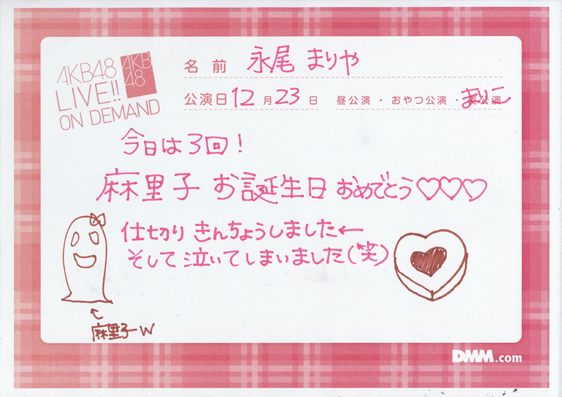 AKB48
LIVE!!
ON DEMAND
AKB
48
名前 永尾 まりや
公演日 12月23日 昼公演・おやつ公演・まりこ
今日は3回！
麻里子 お誕生日 おめでとう♡♡♡
仕切り きんちょうしました←
そして泣いてしまいました(笑)
麻里子w
DMM.com